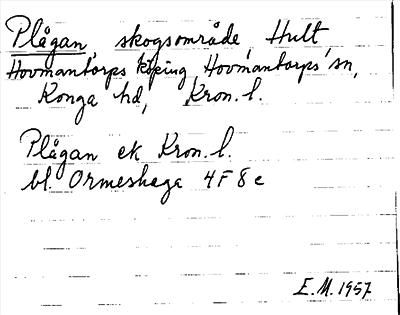 Plågan, skogsområde, Hult
Hovmantorps köping, Hovmantorps sn,
Konga hd, Kron. l.
Plågan ek Kron. l.
bl. Ormeshaga 4 F 8 c
E.M. 1957